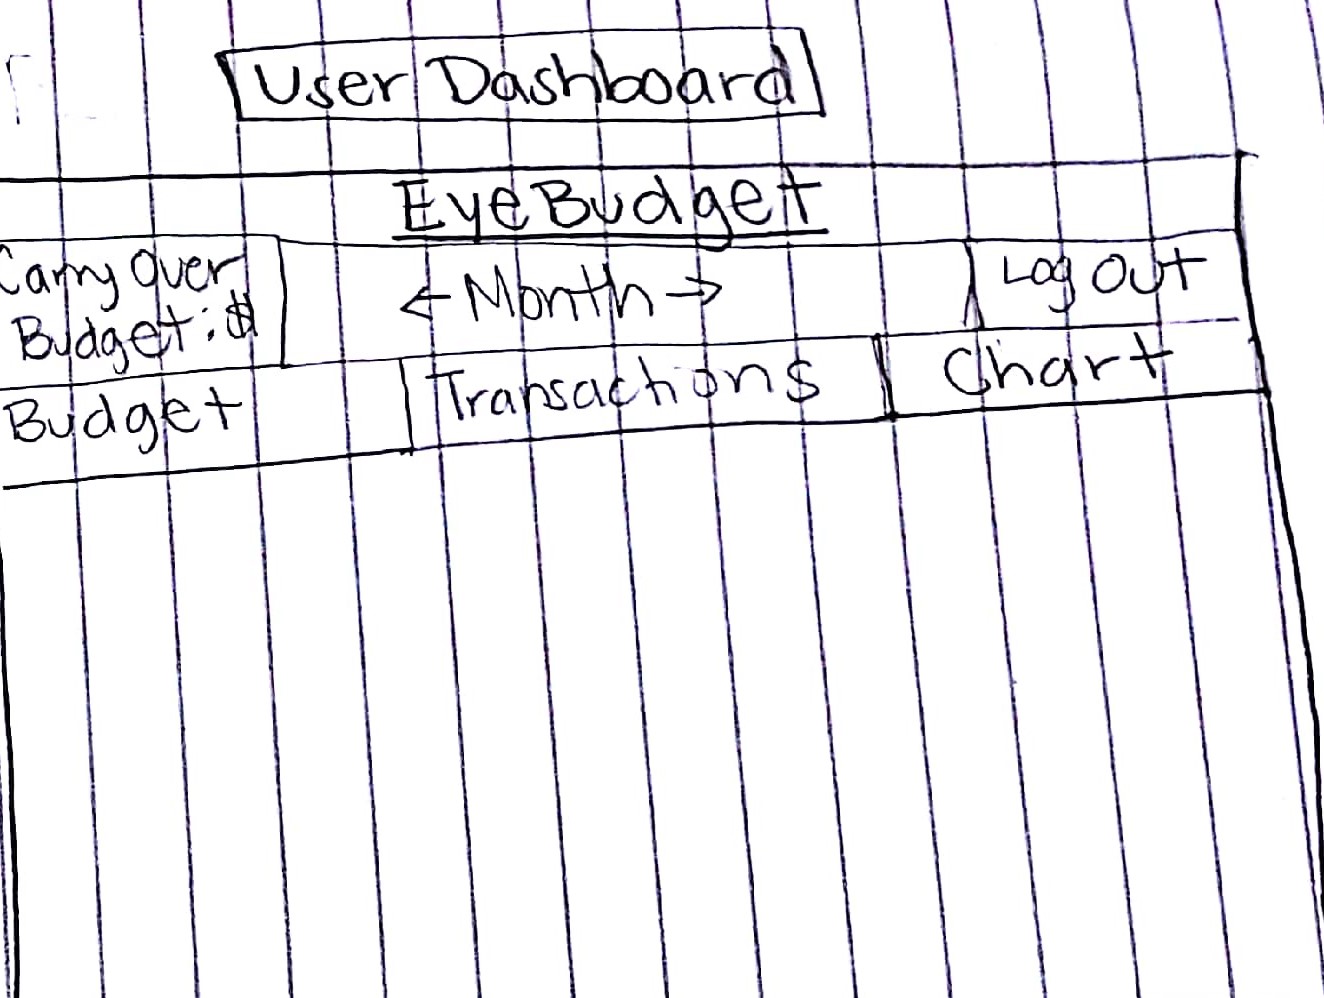 User Dashboard
EyeBudget
Carry Over
Budget: $
← Month →
Log Out
Budget
Transactions
Chart